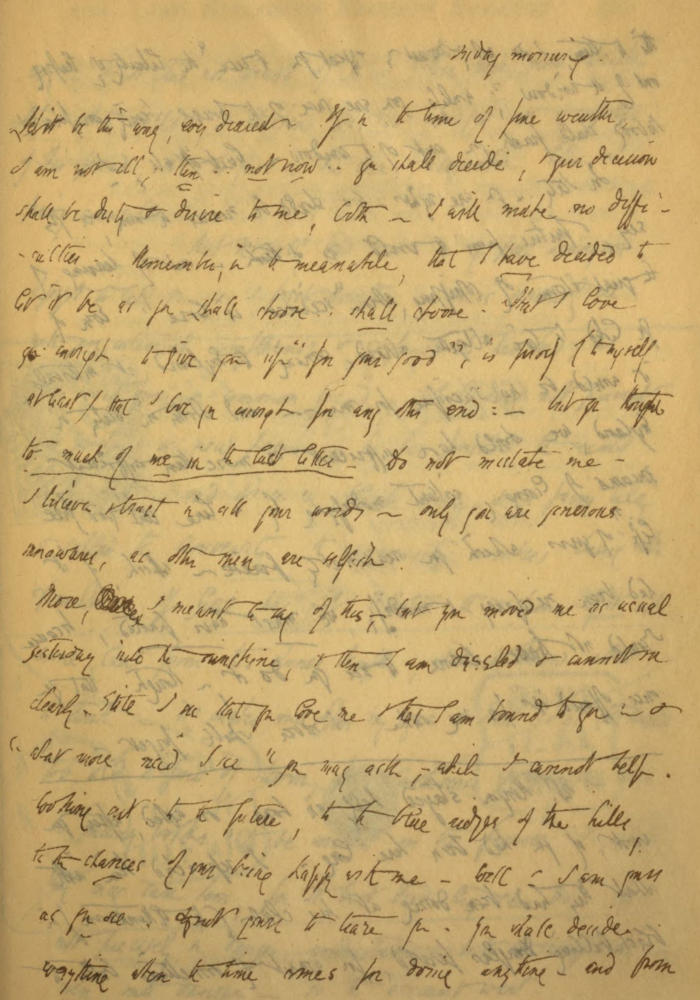 Friday morning.
Let it be this way, ever dearest. If in the time of fine weather,
I am not ill, .. then .. not now .. you shall decide, & your decision
shall be duty & desire to me, both — I will make no diffi-
-culties. Remember, in the meanwhile, that I have decided to
let it be as you shall choose .. shall choose. That I love
you enough to give you up "for your good", is proof (to myself
at least) that I love you enough for any other end: — but you thought
too much of me in the last letter. Do not mistake me —
I believe & trust in all your words — only you are generous
unawares, as other men are selfish.
More, I meant to say of this; but you moved me as usual
yesterday into the sunshine, & then I am dazzled & cannot see
clearly. Still I see that you love me & that I am bound to you: — &
"what more need I see" you may ask; while I cannot help
looking out to the future, to the blue ridges of the hills,
to the chances of your being happy with me. Well! I am yours
as you see .. & not yours to teaze you. You shall decide
everything when the time comes for doing anything .. and from